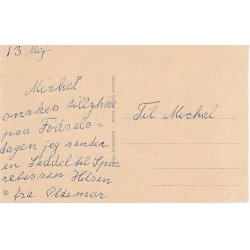 13 Maj
Michal
ønskes tillykke
paa Fødsels-
dagen jeg sender
en Seddel til Spare
rebøssen Hilsen
fra Oldemor
Til Michal